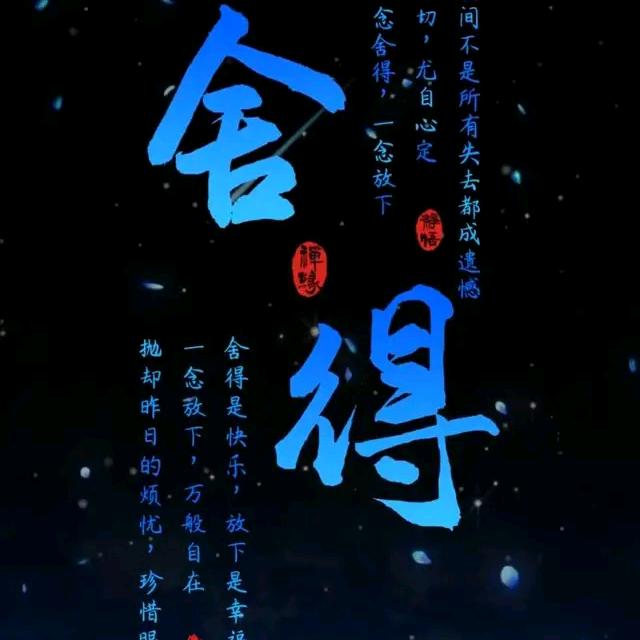 舍得
间不是所有失去都成遗憾
切，尤自心定
念舍得，一念放下
禪緣
舍得是快乐，放下是幸福
一念放下，万般自在
抛却昨日的烦忧，珍惜眼